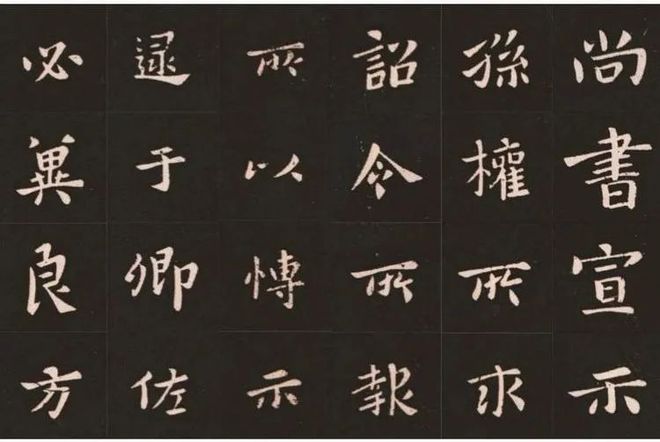 尚書宣示
孫權所求
詔令所報
所以博示
逮于卿佐
必冀良方